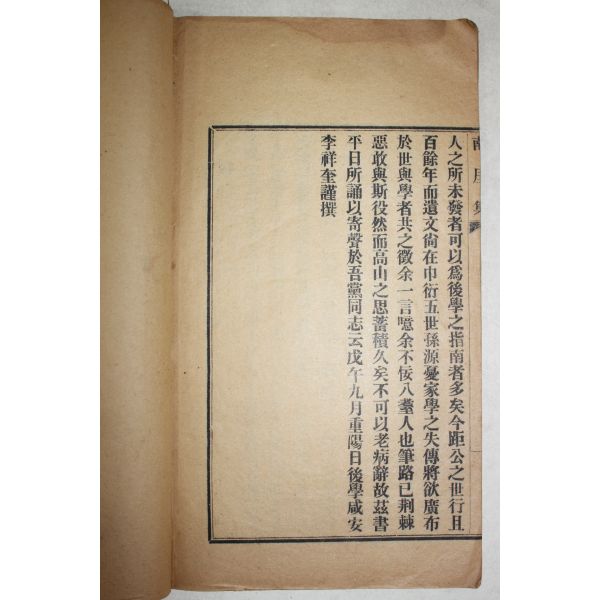 人之所未發者可以爲後學之指南者多矣今距公之世行且
百餘年而遺文尙在巾衍五世孫源憂家學之失傳將欲廣布
於世與學者共之徵余一言噫余不佞八耋人也筆路已荆棘
惡敢與斯役然而高山之思蓄積久矣不可以老病辭故茲書
平日所誦以寄聲於吾黨同志云戊午九月重陽日後學咸安
李祥奎謹撰